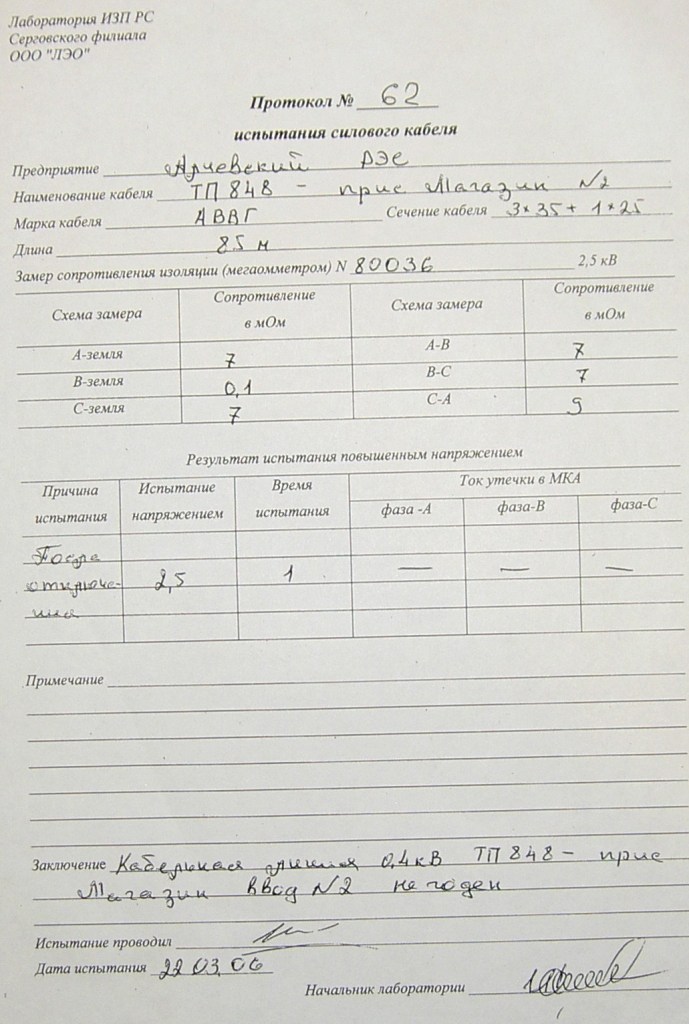 Лаборатория ИЗП РС
Серговского филиала
ООО "ЛЭО"
Протокол № 62
испытания силового кабеля
Предприятие Алчевский РЭС
Наименование кабеля ТП 848 - прис Магазин №2
Марка кабеля АВВГ Сечение кабеля 3*35+1*25
Длина 85 м
Замер сопротивления изоляции (мегаомметром) N 80036 2,5 кВ
Схема замера Сопротивление в мОм Схема замера Сопротивление в мОм
А-земля 7 А-В 7
В-земля 0,1 В-С 7
С-земля 7 С-А 9
Результат испытания повышенным напряжением
Причина испытания Испытание напряжением Время испытания Ток утечки в МКА
фаза -А фаза-В фаза-С
После
отключе- 2,5 1 — — —
ния
Примечание
Заключение Кабельная линия 0,4кВ ТП 848 - прис
Магазин Ввод №2 не годен
Испытание проводил
Дата испытания 22.03.06
Начальник лаборатории